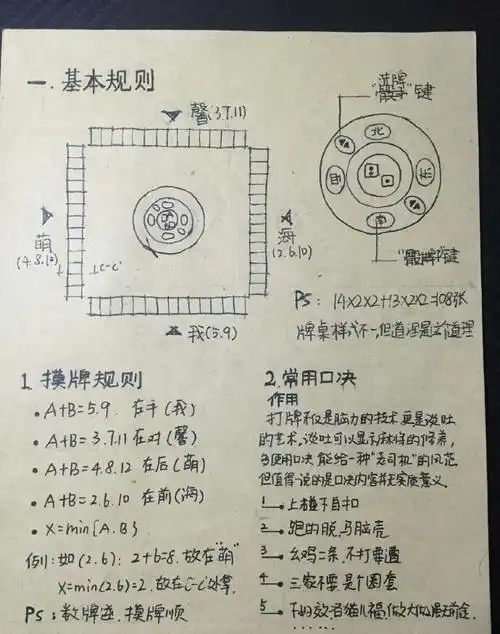 一.基本规则
馨(3.7.11)
萌
(4.8.12)
C-C'
海
(2.6.10)
我(5.9)
洗牌
"骰子"键
北
西
东
南
"骰牌"键
PS: 14×2×2+13×2×2=108张
牌桌样式不一,但道理是这个道理
1.摸牌规则
• A+B=5.9. 在手(我)
• A+B=3.7.11 在对(馨)
• A+B=4.8.12 在后(萌)
• A+B=2.6.10 在前(海)
• X=min{A.B}
例:如(2.6): 2+6=8.放在"萌"
X=min(2.6)=2.放在C-C'处拿.
PS: 数牌逆.摸牌顺
2.常用口决
作用
打牌不仅是脑力的技术更是谈吐
的艺术,谈吐可以显示麻样的修养,
多使用口决,能给一种"老司机"的风范
但值得一说的是口决内容并无实质意义.
1 上碰下自扣
2 跑的脱,马脑壳
3 幺鸡二条,不打要遭
4 三家不要,是个圈套
5
......